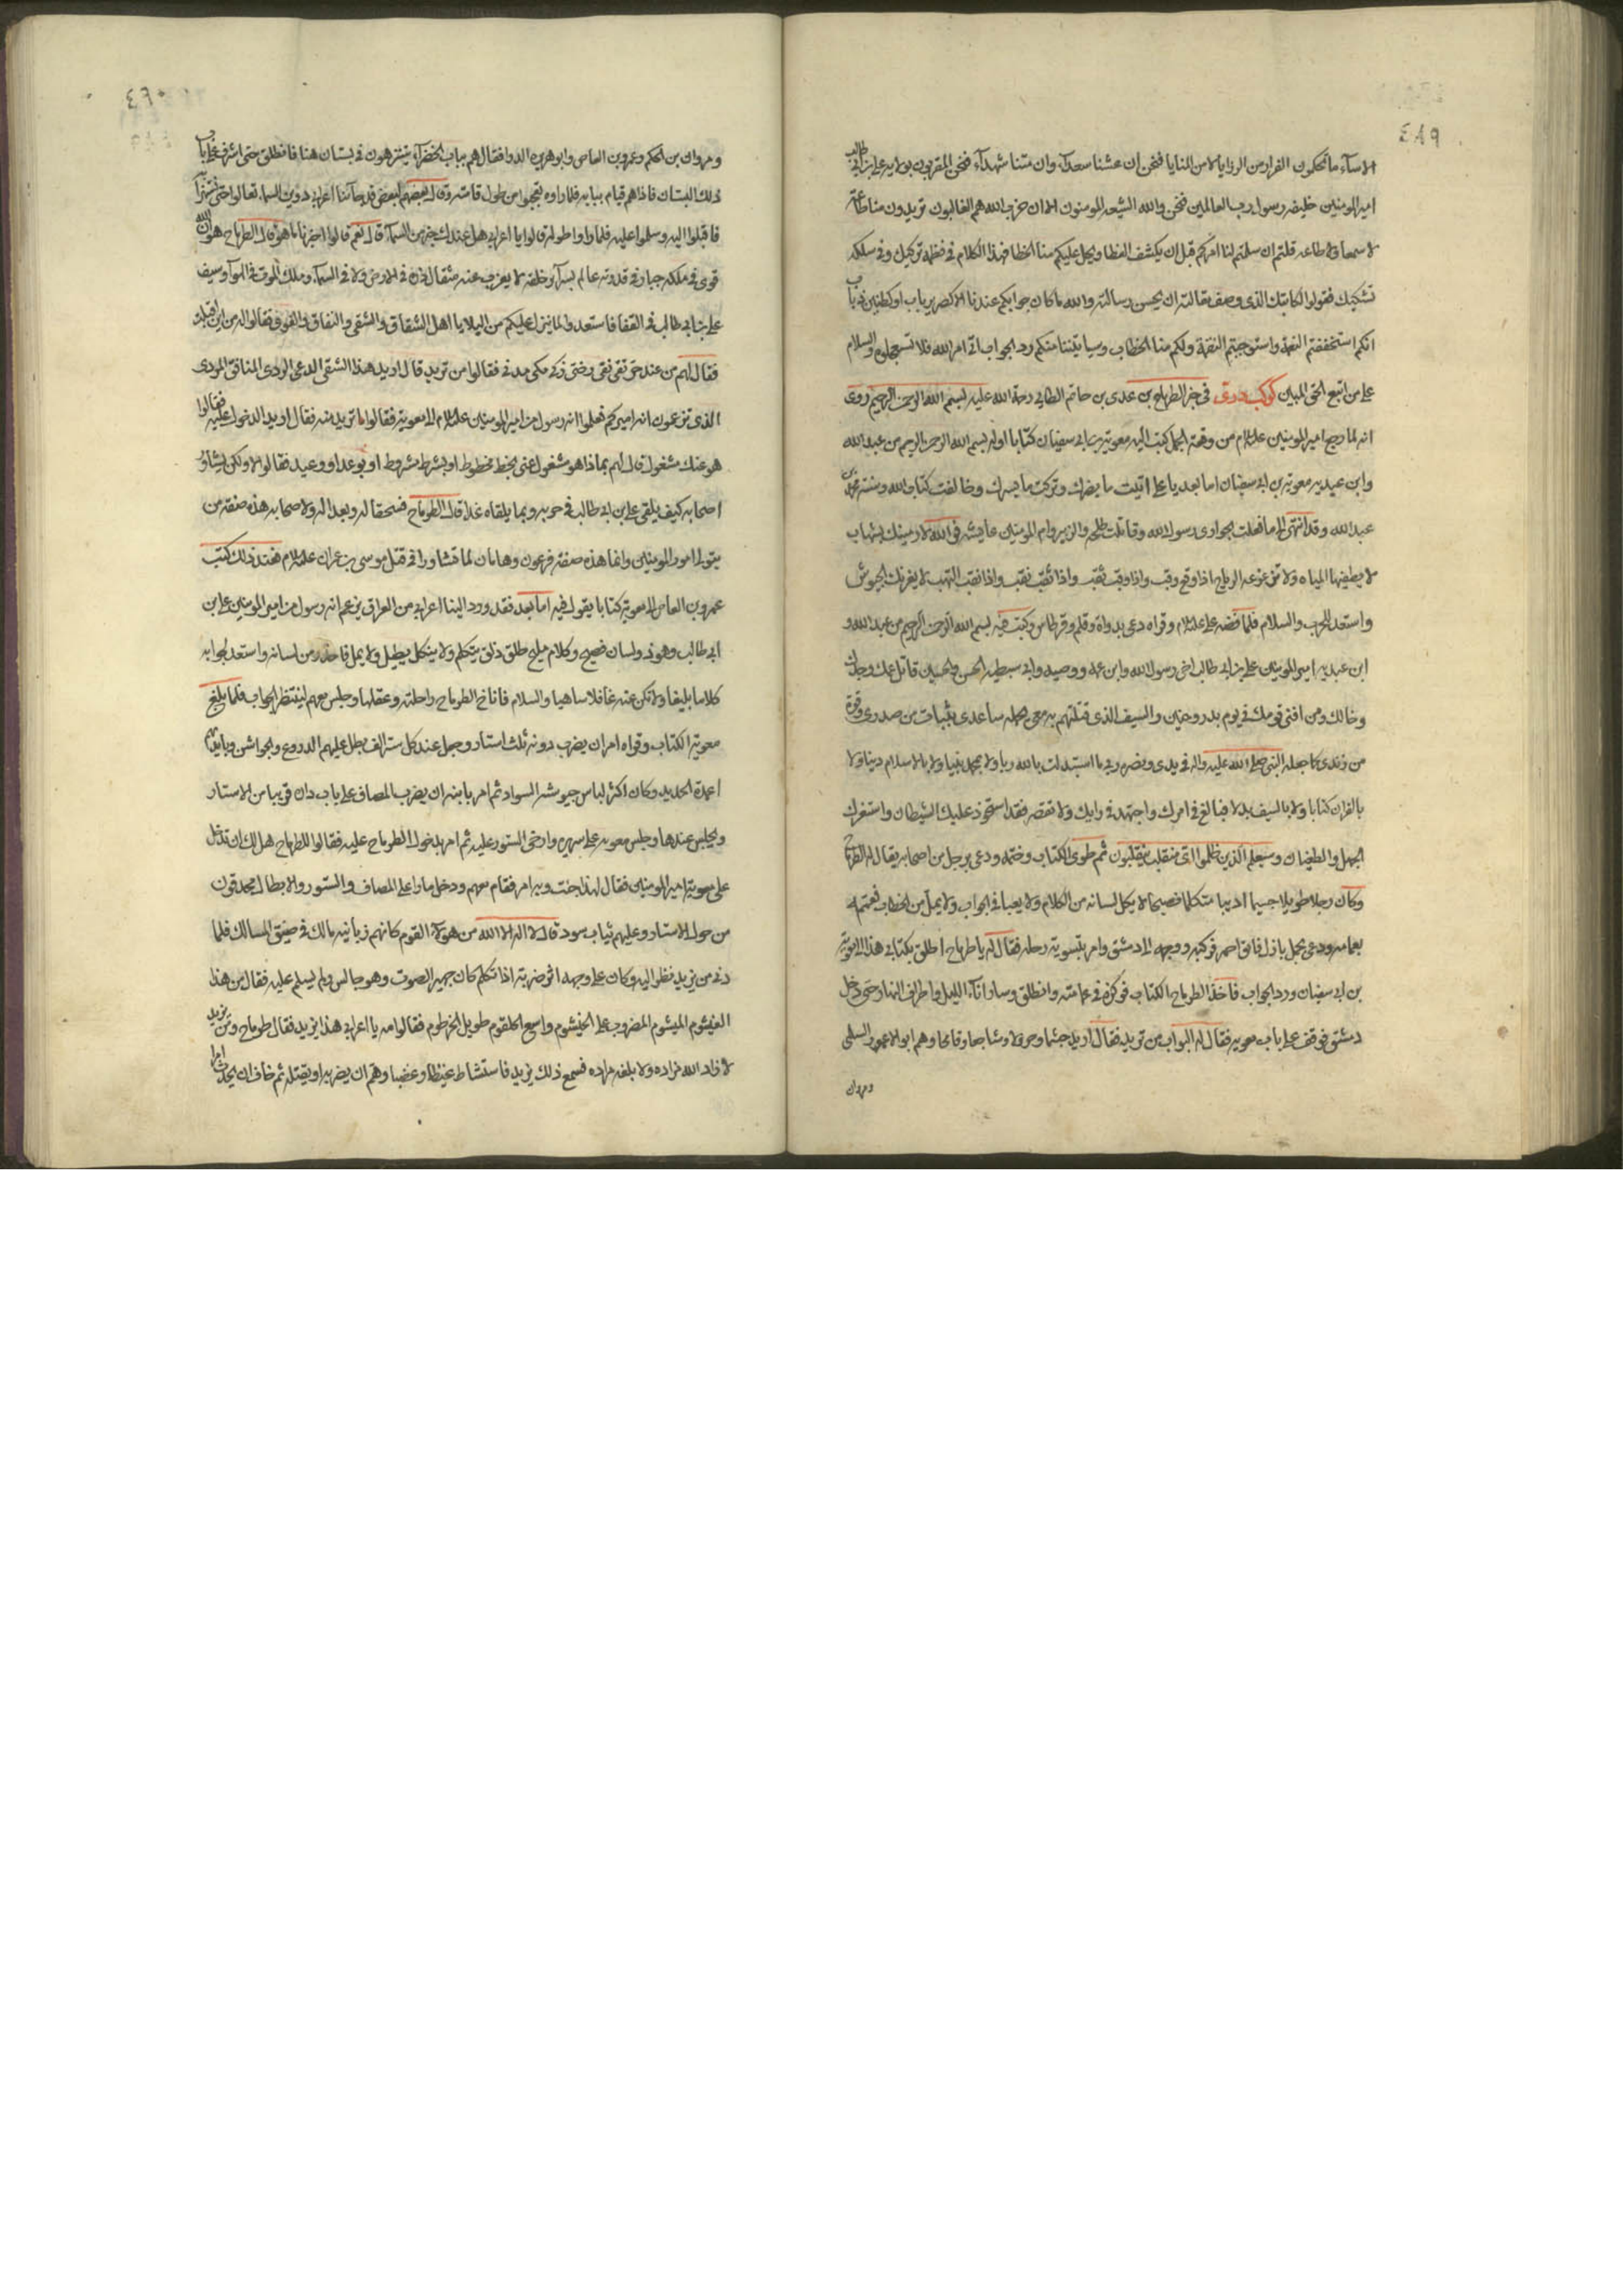 ٤٨٩
الاساء ما تحكمون الفرار من الرزايا لا من المنايا فنحن ان عشنا سعدآء وان متنا شهدآء فنحن المقربون بولايه علي بن ابي طالب
امير المومنين خليفه رسول رب العالمين فنحن والله الشيعه المومنون الا ان حزب الله هم الغالبون تريدون منا طاعة
لا سمعا ولا طاعه قلتم ان سلمتم لنا امركم قبل ان يكشف الغطا ويحل عليكم منا الخطا فهذا الكلام في نظمه تركيك وفي سلكه
تشكيك فقولوا لكاتبك الذي وصف مقالته ان يحسن رسالته والله ما كان جوابكم عندنا الا كصرير باب او كطنين ذباب
انكم استخففتم النعمة واستوجبتم النقمة ولكم منا الخطاب وسياتيننا منكم رد الجواب اتى امر الله فلا تستعجلوه والسلام
على من اتبع الحق المبين كوكب دري في خبر الطرماح بن عدى بن حاتم الطايي رحمة الله عليه بسم الله الرحمن الرحيم روى
انه لما رجع امير المومنين عليه السلام من وقعة الجمل كتب اليه معوية بن ابي سفيان كتابا اوله بسم الله الرحمن الرحيم من عبد الله
وابن عبديه معوية بن ابي سفيان اما بعد يا على اتبعت ما يضرك وتركت ما يسرك وخالفت كتاب الله وسنة محمد بن
عبد الله وقد انتهى الى ما فعلت بحوارى رسول الله وقاتلت طلحه والزبير وام المومنين عايشه فوالله لارمينك بشهاب
لا يطفيها المياه ولا تزعزعه الرياح اذا وقع وقب واذا وقب ثقب واذا ثقب نقب واذا نقب التهب لا يغرنك الجيوش
واستعد للحرب والسلام فلما فضه على عليه السلام وقراه دعى بدواة وقلم وقرطاس وكتب فيه بسم الله الرحمن الرحيم من عبد الله و
ابن عبديه امير المومنين على بن ابي طالب اخى رسول الله وابن عمه ووصيه وابي سبطيه الحسن والحسين قاتل عمك وجدك
وخالك ومن افنى قومك في يوم بدر وحنين والسيف الذي قتلتهم به معى يحمله ساعدى بثبات من صدرى وقوة
من زندى كما جعله النبي صلى الله عليه واله في يدى ونصره ربي ما استبدلت بالله ربا ولا بمحمد نبيا ولا بالاسلام دينا ولا
بالقران كتابا ولا بالسيف بدلا فبالغ في امرك واجتهد في رايك ولا تقصر فقد استحوذ عليك الشيطان واستغرك
الجهل والطغيان وسيعلم الذين ظلموا اى منقلب ينقلبون ثم طوى الكتاب وختمه ودعى برجل من اصحابه يقال له الطرماح
وكان رجلا طويلا جسيما اديبا متكلما فصيحا لا يكل لسانه من الكلام ولا يعيا في الجواب ولا يمل من الخطاب فعممه
بعمامه ودعى بجمل باذل فايق احمر فركبه ووجهه الى دمشق وامر بتسوية رحله فقال له يا طرماح اطلق بكتابي هذا الى معوية
بن ابي سفيان ورد الجواب فاخذ الطرماح الكتاب فوكزه في عمامته وانطلق وسار انآء الليل واطراف النهار حتى دخل
دمشق فوقف على باب معويه فقال له البواب من تريد فقال اريد جشما وجرولا ومشاجعا وقامحا وهم ابو الاعور السلمى
ومروان
٤٩٠
ومروان بن الحكم وعمرو بن العاص وابو هريره الدو فقال هم بباب الخضرآء يتنزهون في بستان هنا فانطلق حتى اشرف على باب
ذلك البستان فاذا هم قيام ببابه فلما راوه تعجبوا من طول قامته وقال بعضهم لبعض قد جآئنا اعرابي دوين السماء تعالوا حتى نستهزأ
فاقبلوا اليه وسلموا عليه فلما راوا طوله قالوا يا اعرابي هل عندك خبر من السمآء قال نعم قالوا اخبرنا ما هو قال الطرماح هو ان الله
قوى في ملكه جبار في قدرته عالم بسرآير خلقه لا يعزب عنه مثقال ذرة في الارض ولا في السمآء وملك الموت في الهوآء وسيف
على بن ابي طالب في القفا فاستعدوا لما ينزل عليكم من البلايا اهل الشقاق والشقى والنفاق والفسوق فقالوا له من اين اقبلت
فقال لهم من عند حر تقى نقى رضى زكى مكى مدنى فقالوا من تريد قال اريد هذا الشقى الدعى الردى المنافق المردى
الذى تزعمون انه اميركم فعلموا انه رسول من امير المومنين عليه السلام الى معوية فقالوا ما تريد منه فقال اريد الدخول عليه فقالوا
هو عنك مشغول قال لهم بماذا هو مشغول عنى بخط مخطوط او بشرط مشروط او بوعد او وعيد فقالوا لا ولكن يشاور
اصحابه كيف يلقى على بن ابي طالب في حربه وبما يلقاه غدا قال الطرماح فسحقا له وبعدا له ولاصحابه هذه صفة من
يتولى امور المومنين وانما هذه صفة فرعون وهامان لما تشاورا في قتل موسى بن عمران عليه السلام فعند ذلك كتب
عمرو بن العاص الى معوية كتابا يقول فيه اما بعد فقد ورد الينا اعرابي من العراق يزعم انه رسول من امير المومنين على بن
ابي طالب وهو ذو لسان فصيح وكلام مليح طلق ذلق يتكلم ولا يتكل يطيل ولا يمل فاحذر من لسانه واستعد لجوابه
كلاما بليغا ولا تكن عنه غافلا ساهيا والسلام فاناخ الطرماح راحلته وعقلها وجلس معهم لينتظر الجواب فلما بلغ
معوية الكتاب وقراه امر ان يضرب دونه ثلث استار وجعل عند كل ستر الف بطل عليهم الدروع والجواشن وبايديهم
اعمدة الحديد وكان اكثر لباس جيوشه السواد ثم امر يا بنه ان يضرب المصاف على باب دان قريبا من الاستار
ويجلس عندها وجلس معويه على سريره وارخى الستور عليه ثم امر بدخول الطرماح عليه فقالوا للطرماح هل لك ان تدخل
على معوية امير المومنين فقال لهذا جئت وبه امر فقام معهم ودخل ما راى المصاف والستور والابطال محدقون
من حول الاستار وعليهم ثياب سود قال لا اله الا الله من هولآء القوم كانهم زبانية مالك في ضيق المسالك فلما
دنى من يزيد نظر اليه وكان على وجهه اثر ضربة اذا تكلم كان جهير الصوت وهو جالس ولم يسلم عليه فقال من هذا
الميشوم المضروب على الخيشوم واسع الحلقوم طويل الخرطوم فقالوا مه يا اعرابي هذا يزيد فقال طرماح ومن يزيد
لا زاد الله مزاده ولا بلغه مراده فسمع ذلك يزيد فاستشاط غيظا وغضبا وهم ان يضربه او يقتله ثم خاف ان يحدث امرا